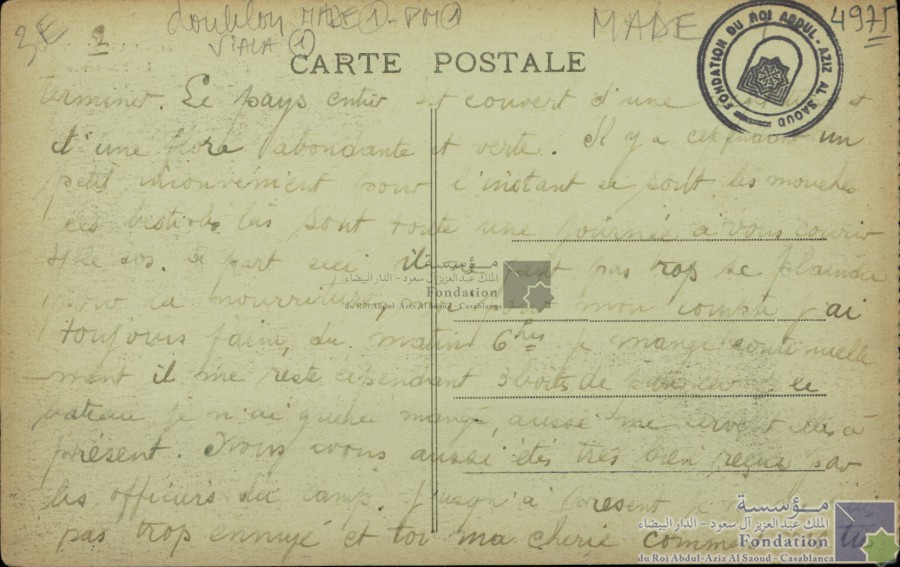 3E 2 doublon MADE ① - PM ① MADE 4975
VIALA ①
CARTE POSTALE
FONDATION DU ROI ABDUL-AZIZ AL SAOUD
terminer. Le pays entier est couvert d'une et
d'une flore abondante et verte. Il y a cependant un
petit inconvénient pour l'instant ce sont les mouches
ces bestioles làs sont toute une journée à vous courir
sos. à part ceci il pas trop se plaindre
pour la nourriture, mon compte j'ai
toujours faim, du matin 6 hres je mange continuelle
ment il me reste cependant 3 boites de ce
bateau je n'ai guère mangé, aussi me servent elles à
présent. Nous avons aussi étés très bien reçus par
les officiers du camp. Jusqu'à présent je
pas trop ennuyé et toi ma chérie comment
مؤسسة
الملك عبد العزيز آل سعود - الدار البيضاء
Fondation
du Roi Abdul-Aziz Al Saoud - Casablanca
مؤسسة
الملك عبد العزيز آل سعود - الدار البيضاء
Fondation
du Roi Abdul-Aziz Al Saoud - Casablanca